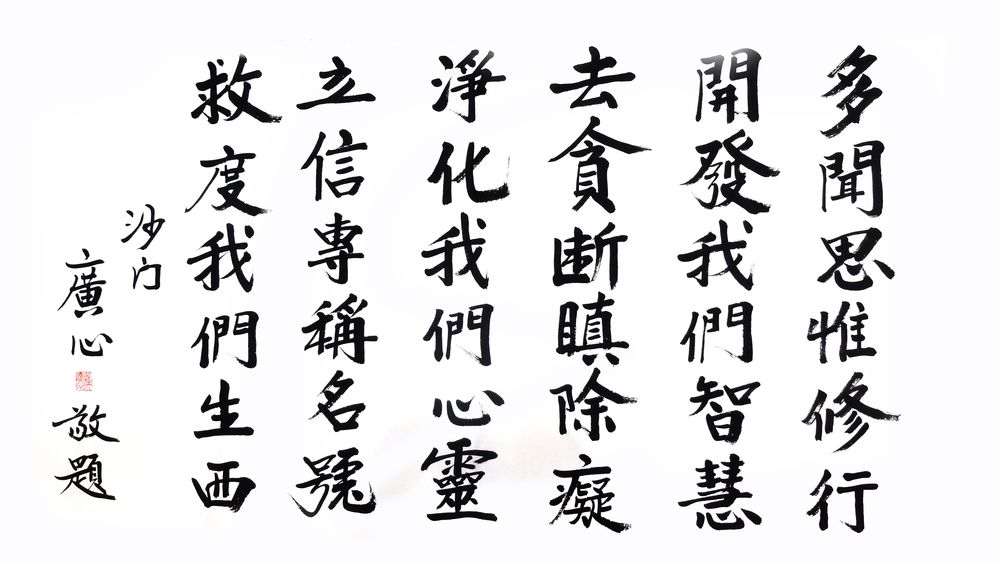 多聞思惟修行
開發我們智慧
去貪断瞋除癡
淨化我們心靈
立信專稱名號
救度我們生西
沙门
廣心
敬題